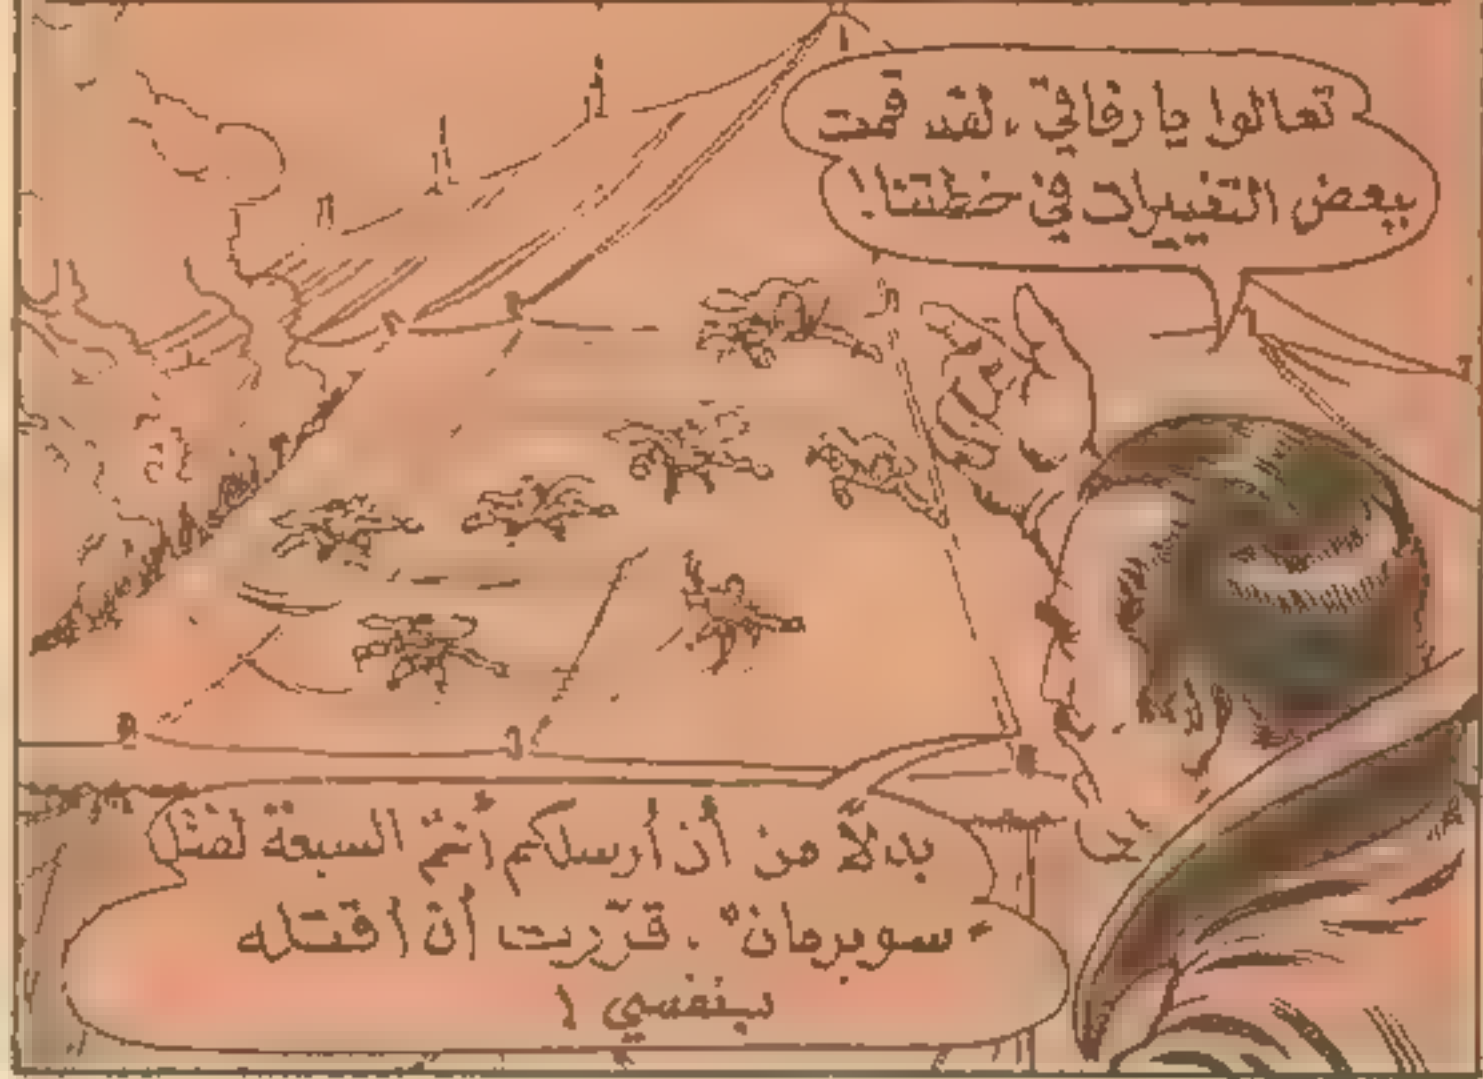 تعالوا يا رفاقيّ ، لقد قمت
ببعض التغييرات في خطتنا !
بدلاً من أن أرسلكم أنتم السبعة لقتل
"سوبرمان" ، قرّرت أن اقتله
بنفسي !